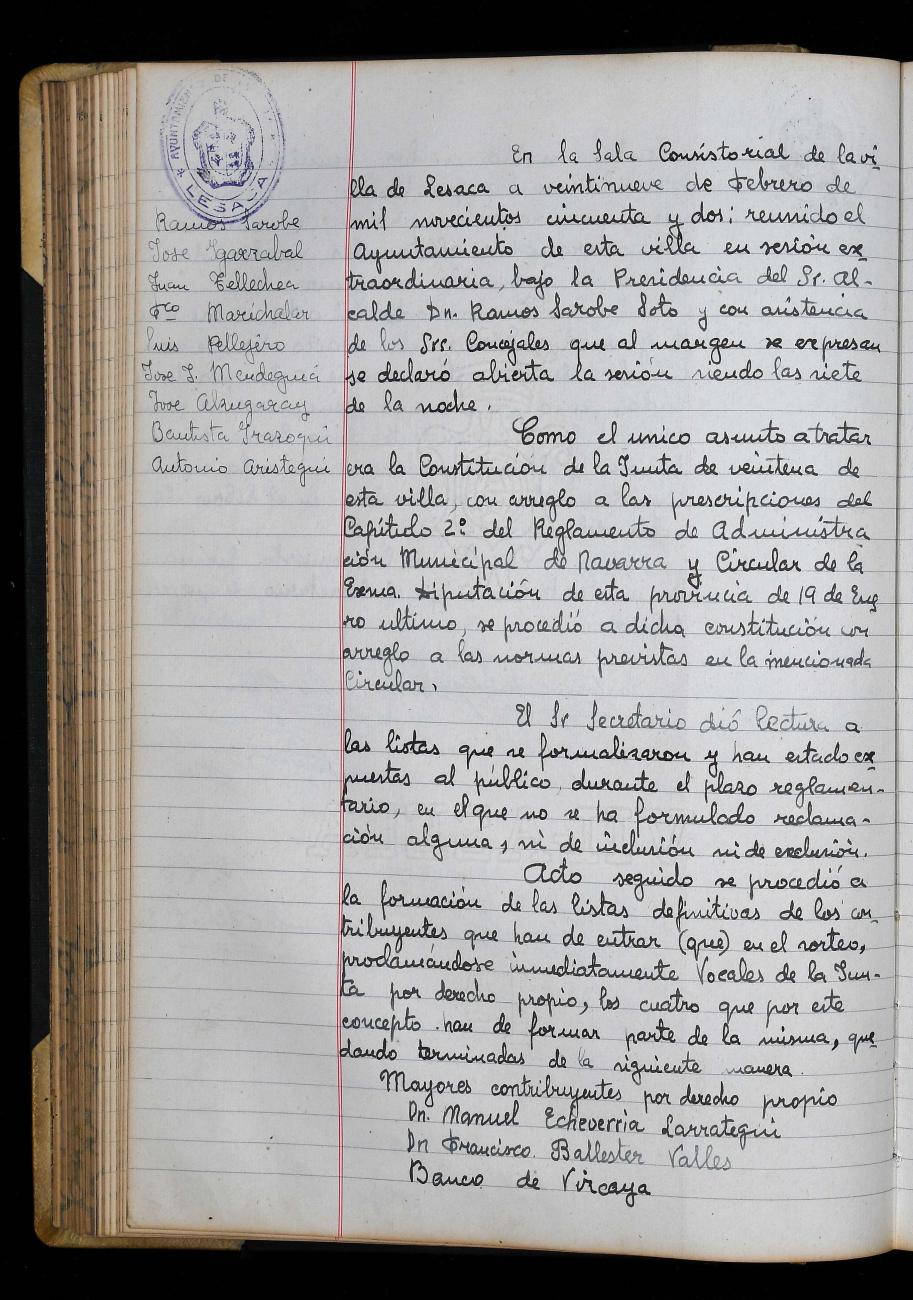 AYUNTAMIENTO DE LA
LESACA
Ramos Sarobe
Jose Igarzabal
Juan Tellechea
Fco Marichalar
Luis Pellejero
Jose J. Mendeguia
Jose Alzugaray
Bautista Irazoqui
Antonio Aristegui
En la Sala Consistorial de la vi
lla de Lesaca a veintinueve de Febrero de
mil novecientos cincuenta y dos; reunido el
Ayuntamiento de esta villa en sesión ex-
traordinaria, bajo la Presidencia del Sr. Al-
calde Dn. Ramos Sarobe Soto y con asistencia
de los Srs. Concejales que al margen se expresan
se declaró abierta la sesión siendo las siete
de la noche.
Como el unico asunto a tratar
era la Constitución de la Junta de veintena de
esta villa, con arreglo a las prescripciones del
Capítulo 2º del Reglamento de Administra
ción Municipal de Navarra y Circular de la
Exma. Diputación de esta provincia de 19 de Ene
ro ultimo, se procedió a dicha constitución con
arreglo a las normas previstas en la mencionada
Circular.
El Sr Secretario dió lectura a
las listas que se formalizaron y han estado ex-
puestas al público, durante el plazo reglamen-
tario, en el que no se ha formulado reclama-
ción alguna, ni de inclusión ni de exclusión.
Acto seguido se procedió a
la formación de las listas definitivas de los con-
tribuyentes que han de entrar (que) en el sorteo,
proclamándose inmediatamente Vocales de la Jun-
ta por derecho propio, los cuatro que por este
concepto han de formar parte de la misma, que-
dando terminadas de la siguiente manera.
Mayores contribuyentes por derecho propio
Dn. Manuel Echeverria Larrategui
Dn Francisco Ballester Valles
Banco de Vizcaya